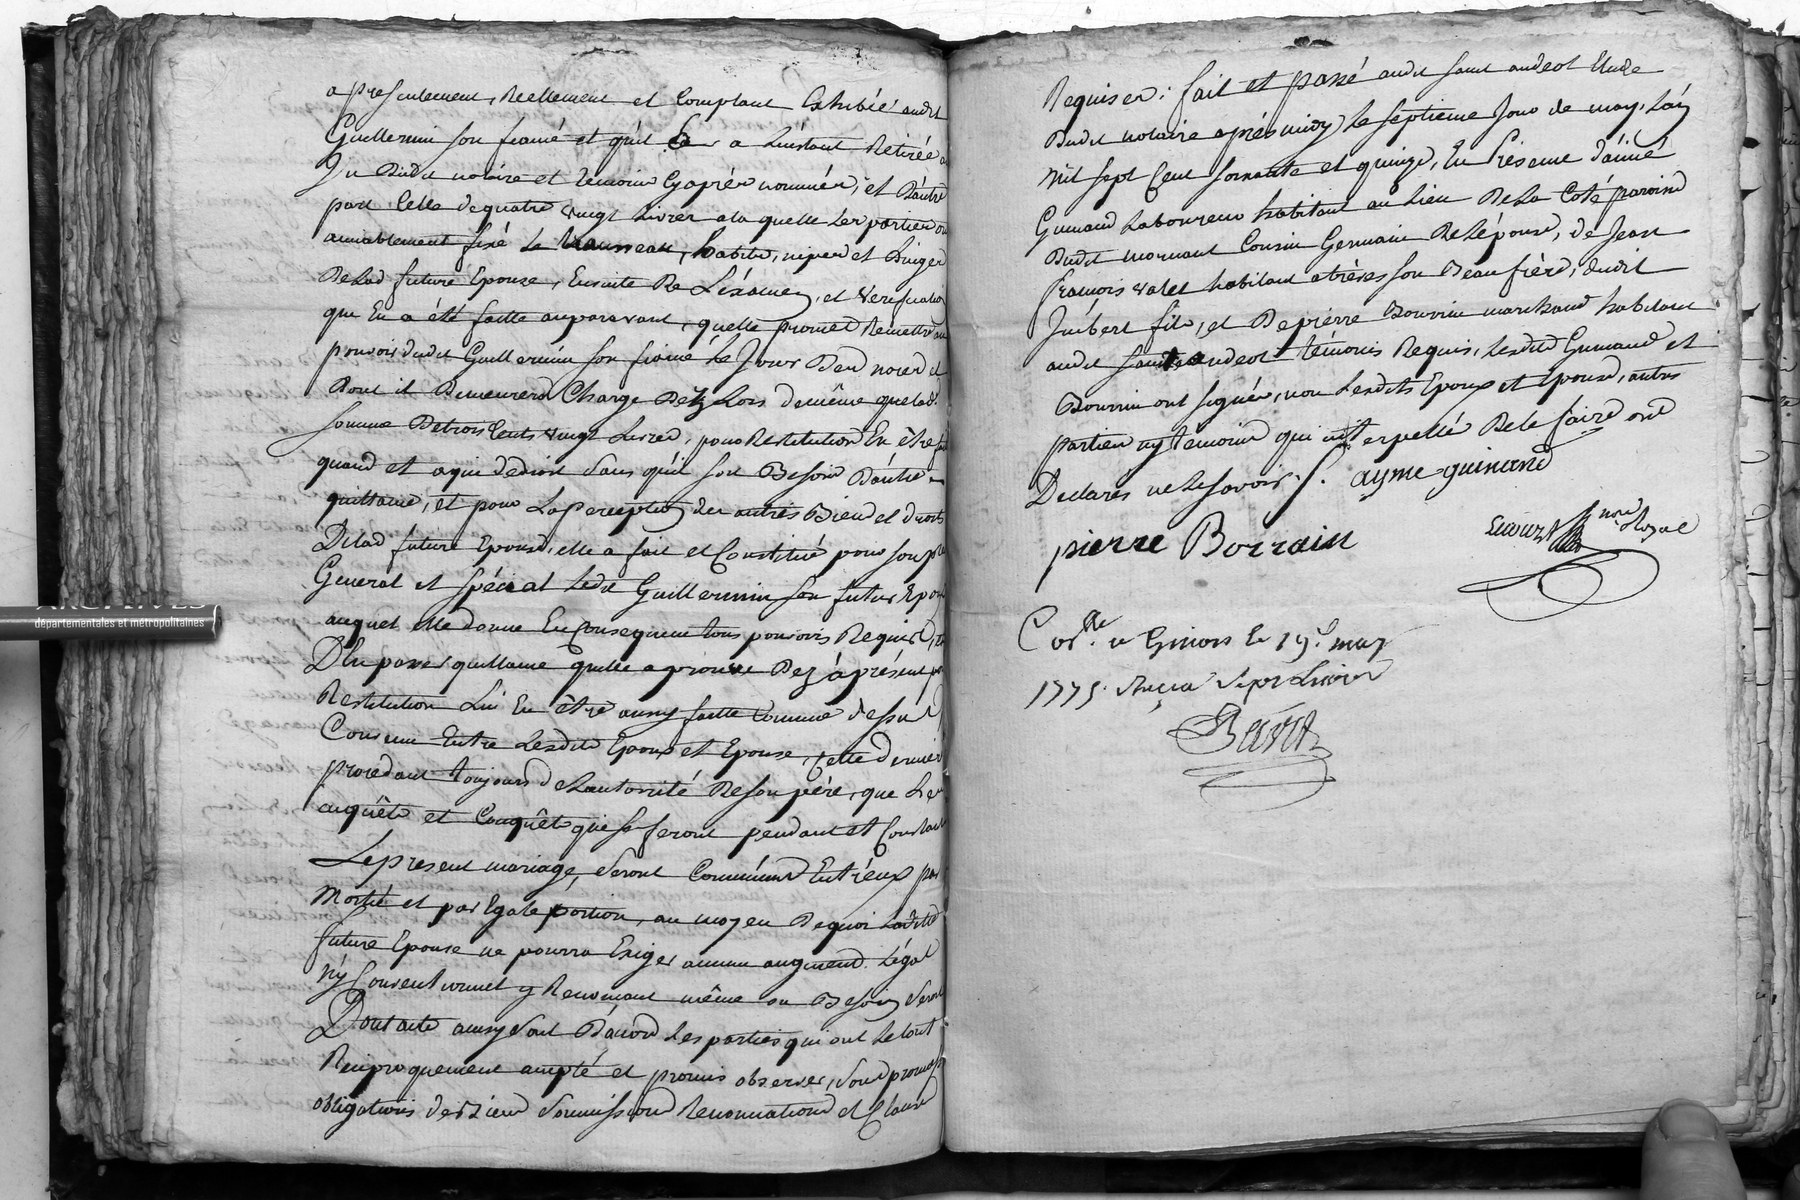 a presentement, Reellement et Comptant Exhibée audit
Guillermin son fiancé et qu'il a a L'instant Retirée
Du dit notaire et temoins Cy après nommés, et D'autre
part Celle de quatre vingt Livres a la quelle Les parties ont
amiablement fixé Le trousseau, habits, nipes et Linges
De Lad future Epouse, Ensuite De L'éxamen, et verification
que En a été faitte auparavant, quelle promet Remettre au
pouvoir dudit Guillermin son fiancé Le Jour Des noces et
Dont il Demeurera Chargé Dez Lors de même que lad.
somme De trois Cents vingt Livres, pour Restitution En être faitte
quand et a qui de droit sans qu'il soit Besoin D'autre
quittance, et pour La perception des autres Biens et droits
De lad future Epouse, elle a fait et Constitué pour son pr
General et spécial Ledit Guillermin son futur Epoux
auquel elle donne En Consequence tous pouvoirs Requis,
D'En passer quittance qu'elle aprouve Dez à présent pour
Restitution Lui En être aussy faitte Comme dessus,
Convenu Entre Lesdits Epoux et Epouse, Cette derniere
procedant toujours de L'autorité De son pére, que Les
acquêts et Conquêts qui se feront pendant et Constant
Le present mariage, seront Communs Entr'eux par
Moitié et par Egale portion, au moyen De quoi Ladite
future Epouse ne pourra Exiger aucun augment Légal
Ny Conventionnel y Renonçant même au Besoin seront
Dont acte ainsy sont D'acord Les parties qui ont Le tout
Reciproquement accepté et promis observer, sous promesses
obligations de Biens soumissions Renonciations et Clauses
Requises: fait et passé audit saint andeol Etude
Dudit notaire après midy Le septieme Jour de may, L'an
mil sept Cent soixante et quinze, En Présence d'aimé
Guinand Laboureur habitant au Lieu De La Coté paroisse
Dudit mornant Cousin Germain De L'époux, de Jean
francois valet habitant a trèves son Beau frère, dudit
Imbert fils, et De pierre Bourrin marchand habitant
audit saint andeol témoins Requis, Lesdits Guinand et
Bourrin ont signés, non Lesdits Epoux et Epouse, autres
parties ny temoins qui interpellé De le faire ont
Declarés ne Le savoir. /. ayme guinand
pierre Borrain
nore Royal
Cor.lle a Givors le 19.e may
1775. Reçu sept Livres